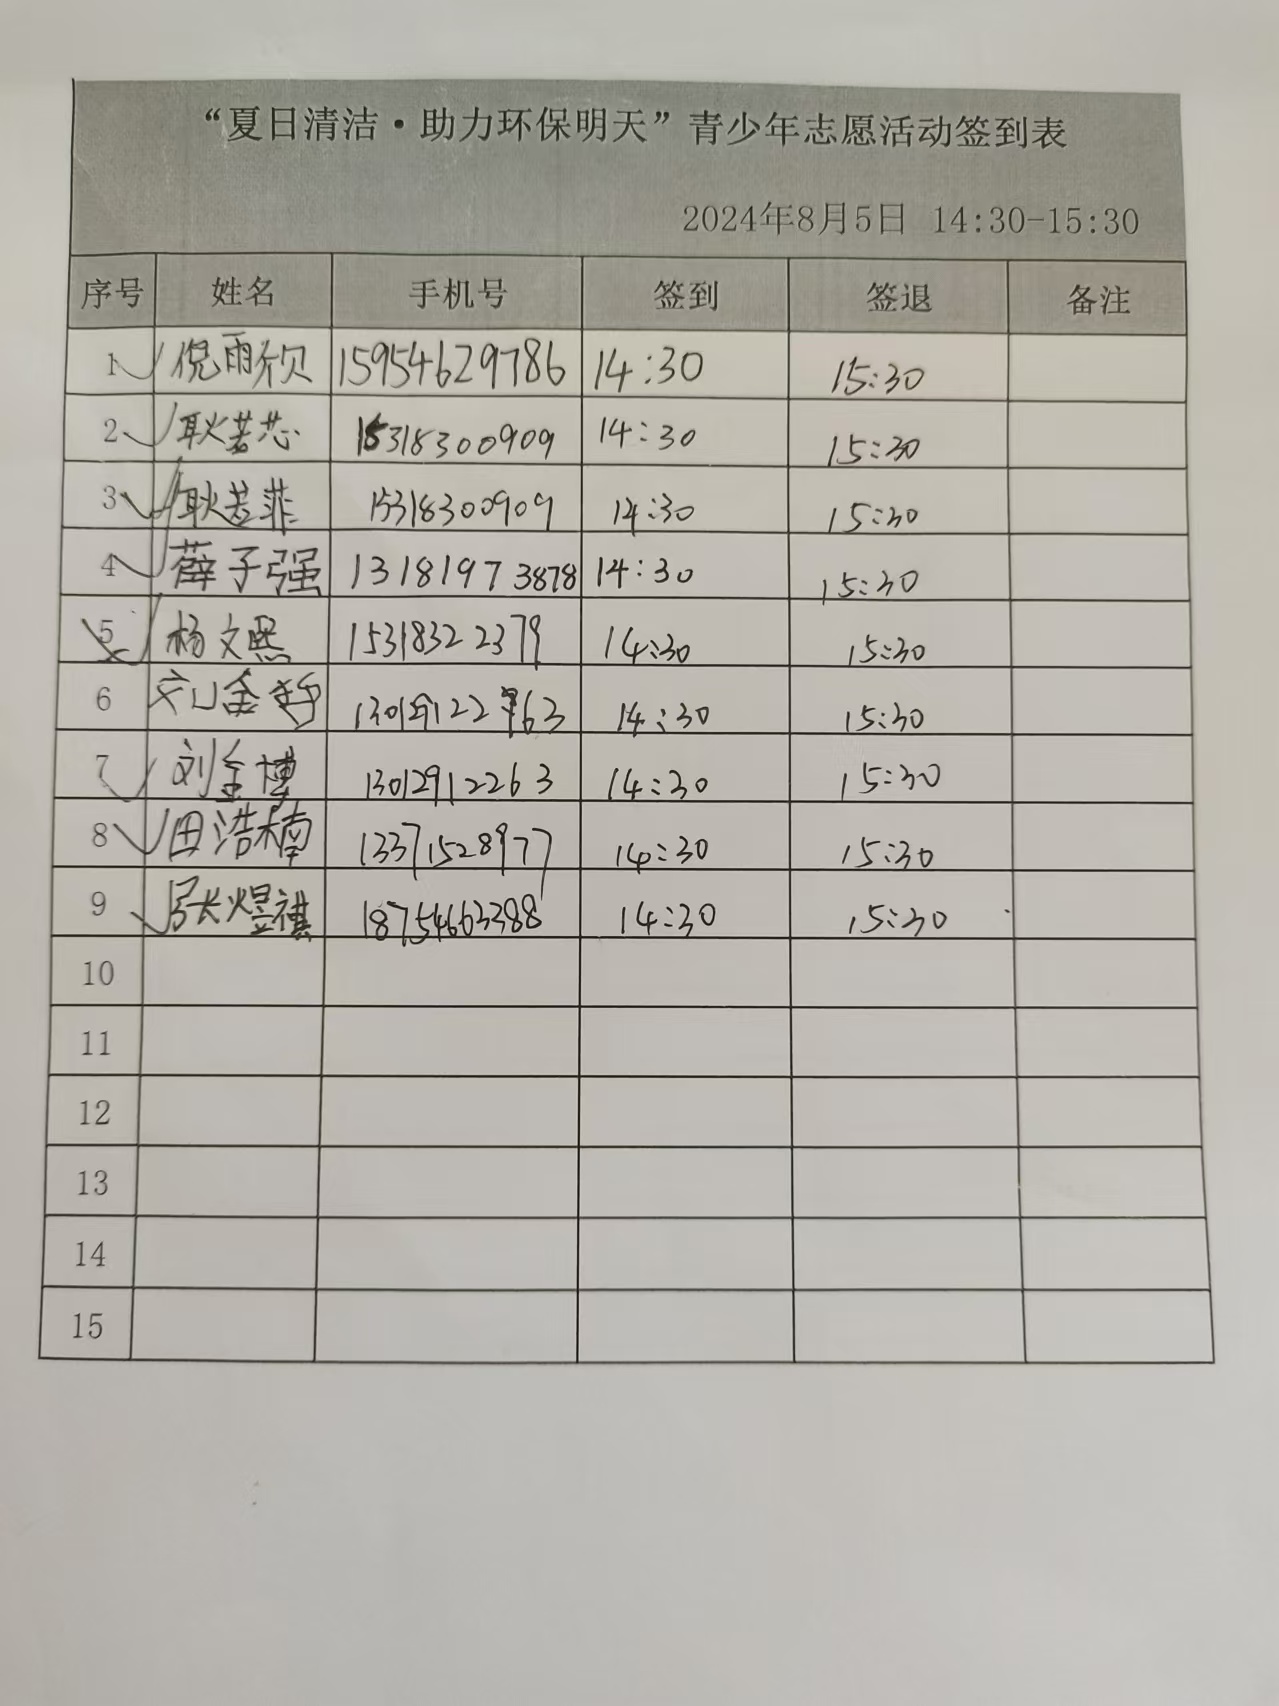 “夏日清洁·助力环保明天”青少年志愿活动签到表
2024年8月5日 14:30-15:30
序号 姓名 手机号 签到 签退 备注
1 倪雨欣 15954629786 14:30 15:30
2 耿若芯 15318300909 14:30 15:30
3 耿若菲 15318300909 14:30 15:30
4 薛子强 13181973878 14:30 15:30
5 杨文熙 15318322379 14:30 15:30
6 刘金 14:30 15:30
7 刘金博 13012912263 14:30 15:30
8 田浩楠 13371528977 14:30 15:30
9 张煜祺 18754663388 14:30 15:30
10
11
12
13
14
15